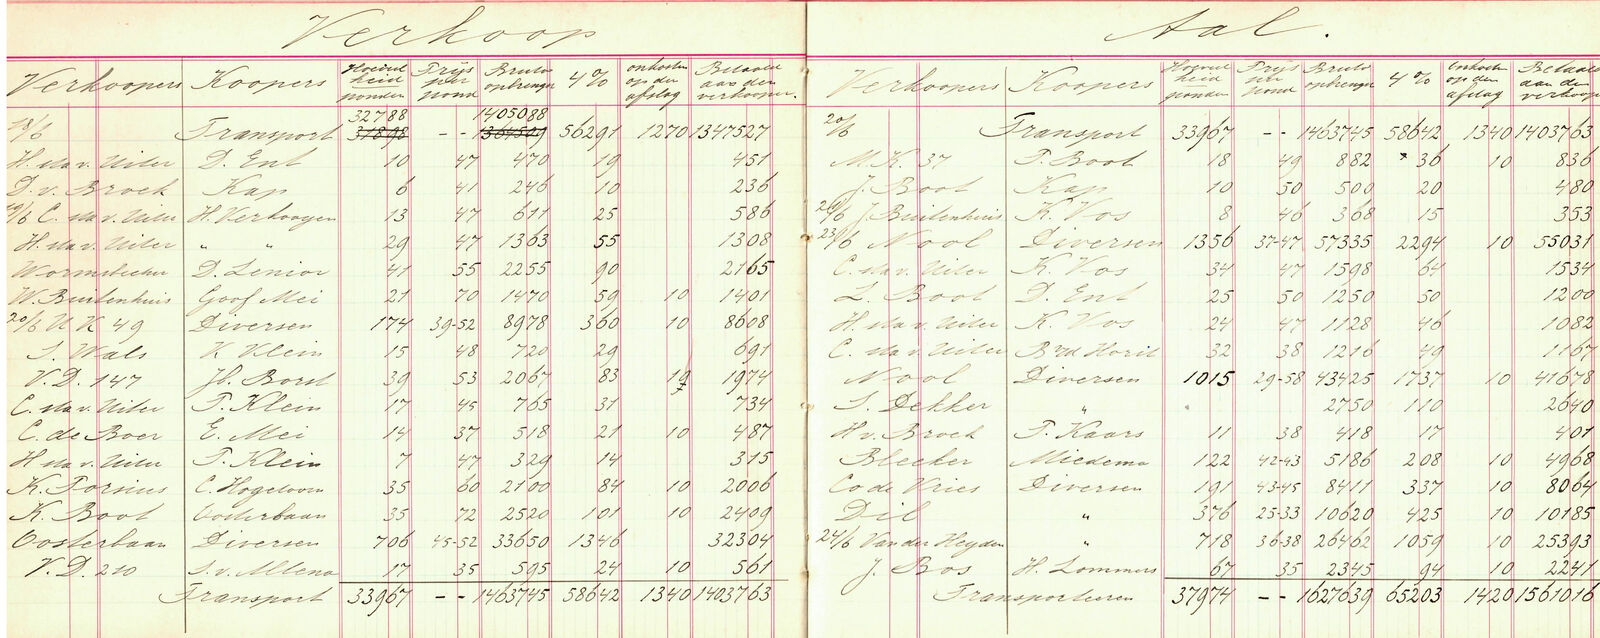 Verkoop
Verkoopers Koopers Hoeveelheid ponden Prijs per pond Bruto opbrengst 4% onkosten op den afslag Betaald aan den verkooper.
32788 1405088
18/6 Transport 31898 -- 1364509 56291 1270 1347527
H. v. Uiter D. Ent 10 47 470 19 451
D. v. Broek Kap 6 41 246 10 236
19/6 C. v. Uiter H. Verhoogen 13 47 611 25 586
H. v. Uiter " " 29 47 1363 55 1308
D. Senior 41 55 2255 90 2165
W. Buitenhuis Goof Mei 21 70 1470 59 10 1401
20/6 U K 49 Diversen 174 39-52 8978 360 10 8608
S. Wals K Klein 15 48 720 29 691
V. D. 147 Jb. Borst 39 53 2067 83 10 1974
C. v. Uiter P. Klein 17 45 765 31 734
C. de Boer E. Mei 14 37 518 21 10 487
H v. Uiter P. Klein 7 47 329 14 315
K. Porsius C. Hogetoorn 35 60 2100 84 10 2006
K. Boot Oosterbaan 35 72 2520 101 10 2409
Oosterbaan Diversen 706 45-52 33650 1346 32304
V. D. 210 S. v. Altena 17 35 595 24 10 561
Transport 33967 -- 1463745 58642 1340 1403763
Aal.
Verkoopers Koopers Hoeveelheid ponden Prijs per pond Bruto opbrengst 4% onkosten op den afslag Betaald aan den verkooper
20/6 Transport 33967 -- 1463745 58642 1340 1403763
M. K. 37 P. Boot 18 49 882 36 10 836
J. Boot Kap 10 50 500 20 480
J. Buitenhuis K. Vos 8 46 368 15 353
23/6 Nool Diversen 1356 37-47 57335 2294 10 55031
C. v. Uiter K. Vos 34 47 1598 64 1534
L. Boot D. Ent 25 50 1250 50 1200
H. v. Uiter K. Vos 24 47 1128 46 1082
C. v. Uiter 32 38 1216 49 1167
Nool Diversen 1015 29-58 43425 1737 10 41678
S. Dekker " 2750 110 2640
H v. Broek P. Kaars 11 38 418 17 401
Bleeker Miedema 122 42-43 5186 208 10 4968
Co de Vries Diversen 191 43-45 8411 337 10 8064
Dil " 376 25-33 10620 425 10 10185
24/6 Van der Heyden " 718 36-38 26462 1059 10 25393
J. Bos H. Lommers 67 35 2345 94 10 2241
Transporteeren 37974 -- 1627639 65203 1420 1561016